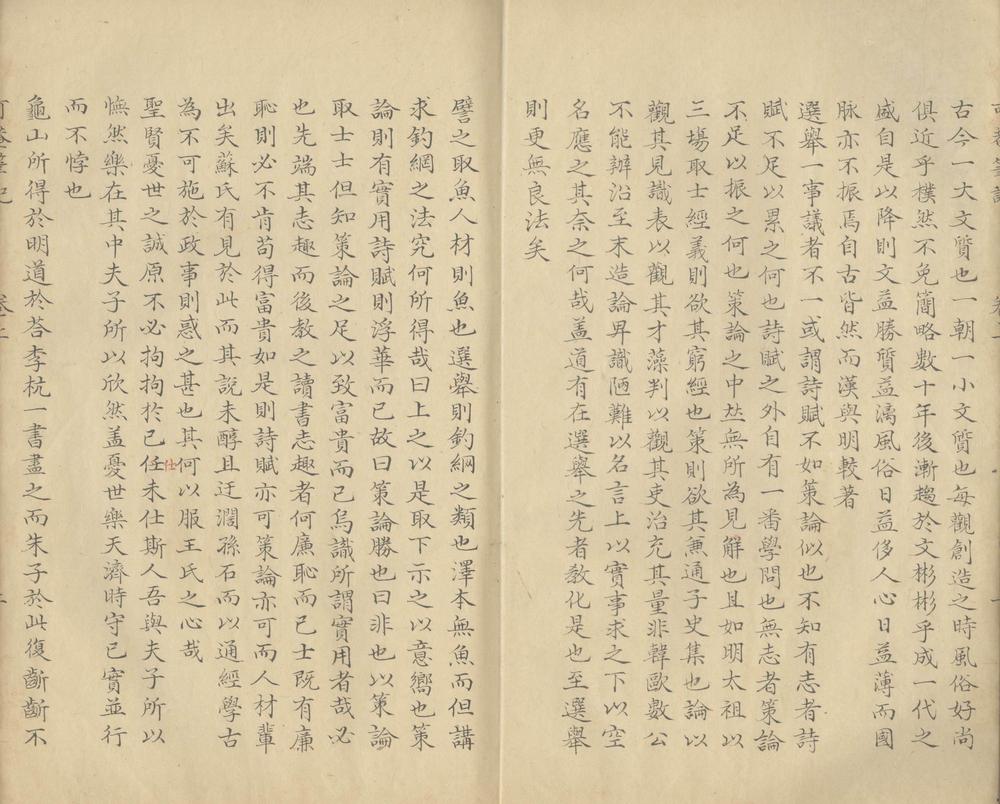 古今一大文質也一朝一小文質也每觀創造之時風俗好尚
俱近乎樸然不免簡略數十年後漸趨於文彬彬乎成一代之
盛自是以降則文益勝質益漓風俗日益侈人心日益薄而國
脉亦不振焉自古皆然而漢與明較著
選舉一事議者不一或謂詩賦不如策論似也不知有志者詩
賦不足以累之何也詩賦之外自有一番學問也無志者策論
不足以振之何也策論之中并無所為見解也且如明太祖以
三場取士經義則欲其窮經也策則欲其兼通子史集也論以
觀其見識表以觀其才藻判以觀其吏治充其量非韓歐數公
不能辦沿至末造論卑識陋難以名言上以實事求之下以空
名應之其奈之何哉盖道有在選舉之先者教化是也至選舉
則更無良法矣
譬之取魚人材則魚也選舉則釣網之類也澤本無魚而但講
求釣網之法究何所得哉曰上之以是取下示之以意嚮也策
論則有實用詩賦則浮華而已故曰策論勝也曰非也以策論
取士士但知策論之足以致富貴而已烏識所謂實用者哉必
也先端其志趣而後教之讀書志趣者何廉恥而已士既有廉
恥則必不肯苟得富貴如是則詩賦亦可策論亦可而人材輩
出矣蘇氏有見於此而其說未醇且迂濶孫石而以通經學古
為不可施於政事則惑之甚也其何以服王氏之心哉
聖賢憂世之誠原不必拘拘於已任未仕斯人吾與夫子所以
仕
憮然樂在其中夫子所以欣然盖憂世樂天濟時守己實並行
而不悖也
龜山所得於明道於荅李杭一書盡之而朱子於此復齗齗不